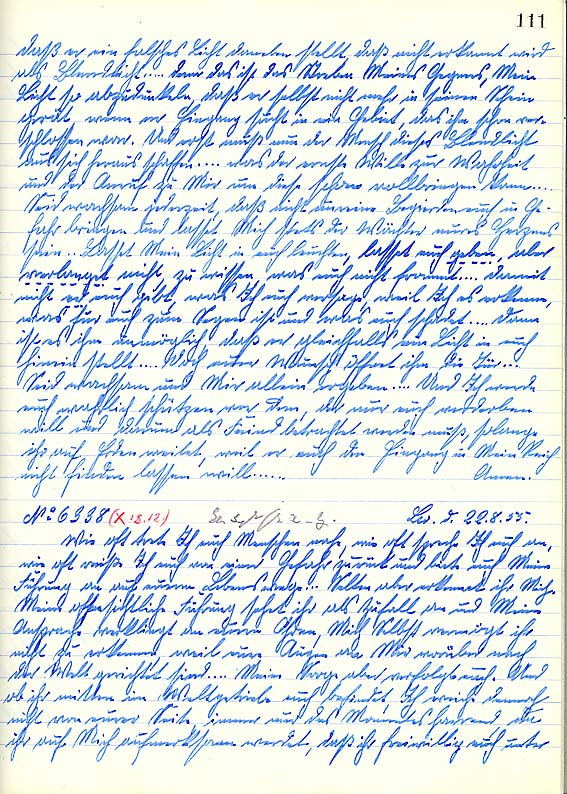 111
daß er ein falsches Licht daneben stellt, daß nicht erkannt wird
als Blendlicht..... denn das ist das Streben Meines Gegners, Mein
Licht so abzudunkeln, daß er selbst nicht mehr in seinen Schein
gerät, wenn er Eingang sucht in ein Gebiet, das ihm schon ver-
schlossen war. Und erst muß nun der Mensch dieses Blendlicht
aus sich heraus schaffen.... was der ernste Wille zur Wahrheit
und der Anruf zu Mir um diese schon vollbringen kann....
Seid wachsam jederzeit, daß nicht unreine Begierden euch in Ge-
fahr bringen und lasset Mich stets der Wächter eures Herzens
sein.. Lasset Mein Licht in euch leuchten, lasset euch geben, aber
verlanget nicht, zu wissen was euch nicht frommt.... damit
nicht er euch gibt, was Ich euch versage, weil Ich es erkenne,
was für euch zum Segen ist und was euch schadet.... Dann
ist es ihm unmöglich, daß er gleichfalls ein Licht in euch
hinein stellt.... Doch euer Wunsch öffnet ihm die Tür...
Seid wachsam und Mir allein ergeben.... Und Ich werde
euch wahrlich schützen vor dem, der nur euch verderben
will und darum als Feind betrachtet werden muß, solange
ihr auf Erden weilet, weil er euch den Eingang in Mein Reich
nicht finden lassen will...... Amen.
No 6338 (X 18.12.) 22.8.55.
Wie oft trete Ich euch Menschen nahe, wie oft spreche Ich euch an,
wie oft reiße Ich euch aus einer Gefahr zurück und biete euch Meine
Führung an auf eurem Lebenswege... Selten aber erkennet ihr Mich.
Meine offensichtliche Führung sehet ihr als Zufall an und Meine
Ansprache verklingt an euren Ohren, Mich Selbst vermögt ihr
nicht zu erkennen, weil eure Augen an Mir vorüber nach
der Welt gerichtet sind.... Meine Sorge aber verfolgt euch. Und
ob ihr mitten im Weltgetriebe euch befindet, Ich weiche dennoch
nicht von eurer Seite, immer nur des Momentes harrend da
ihr auf Mich aufmerksam werdet, daß ihr freiwillig euch unter